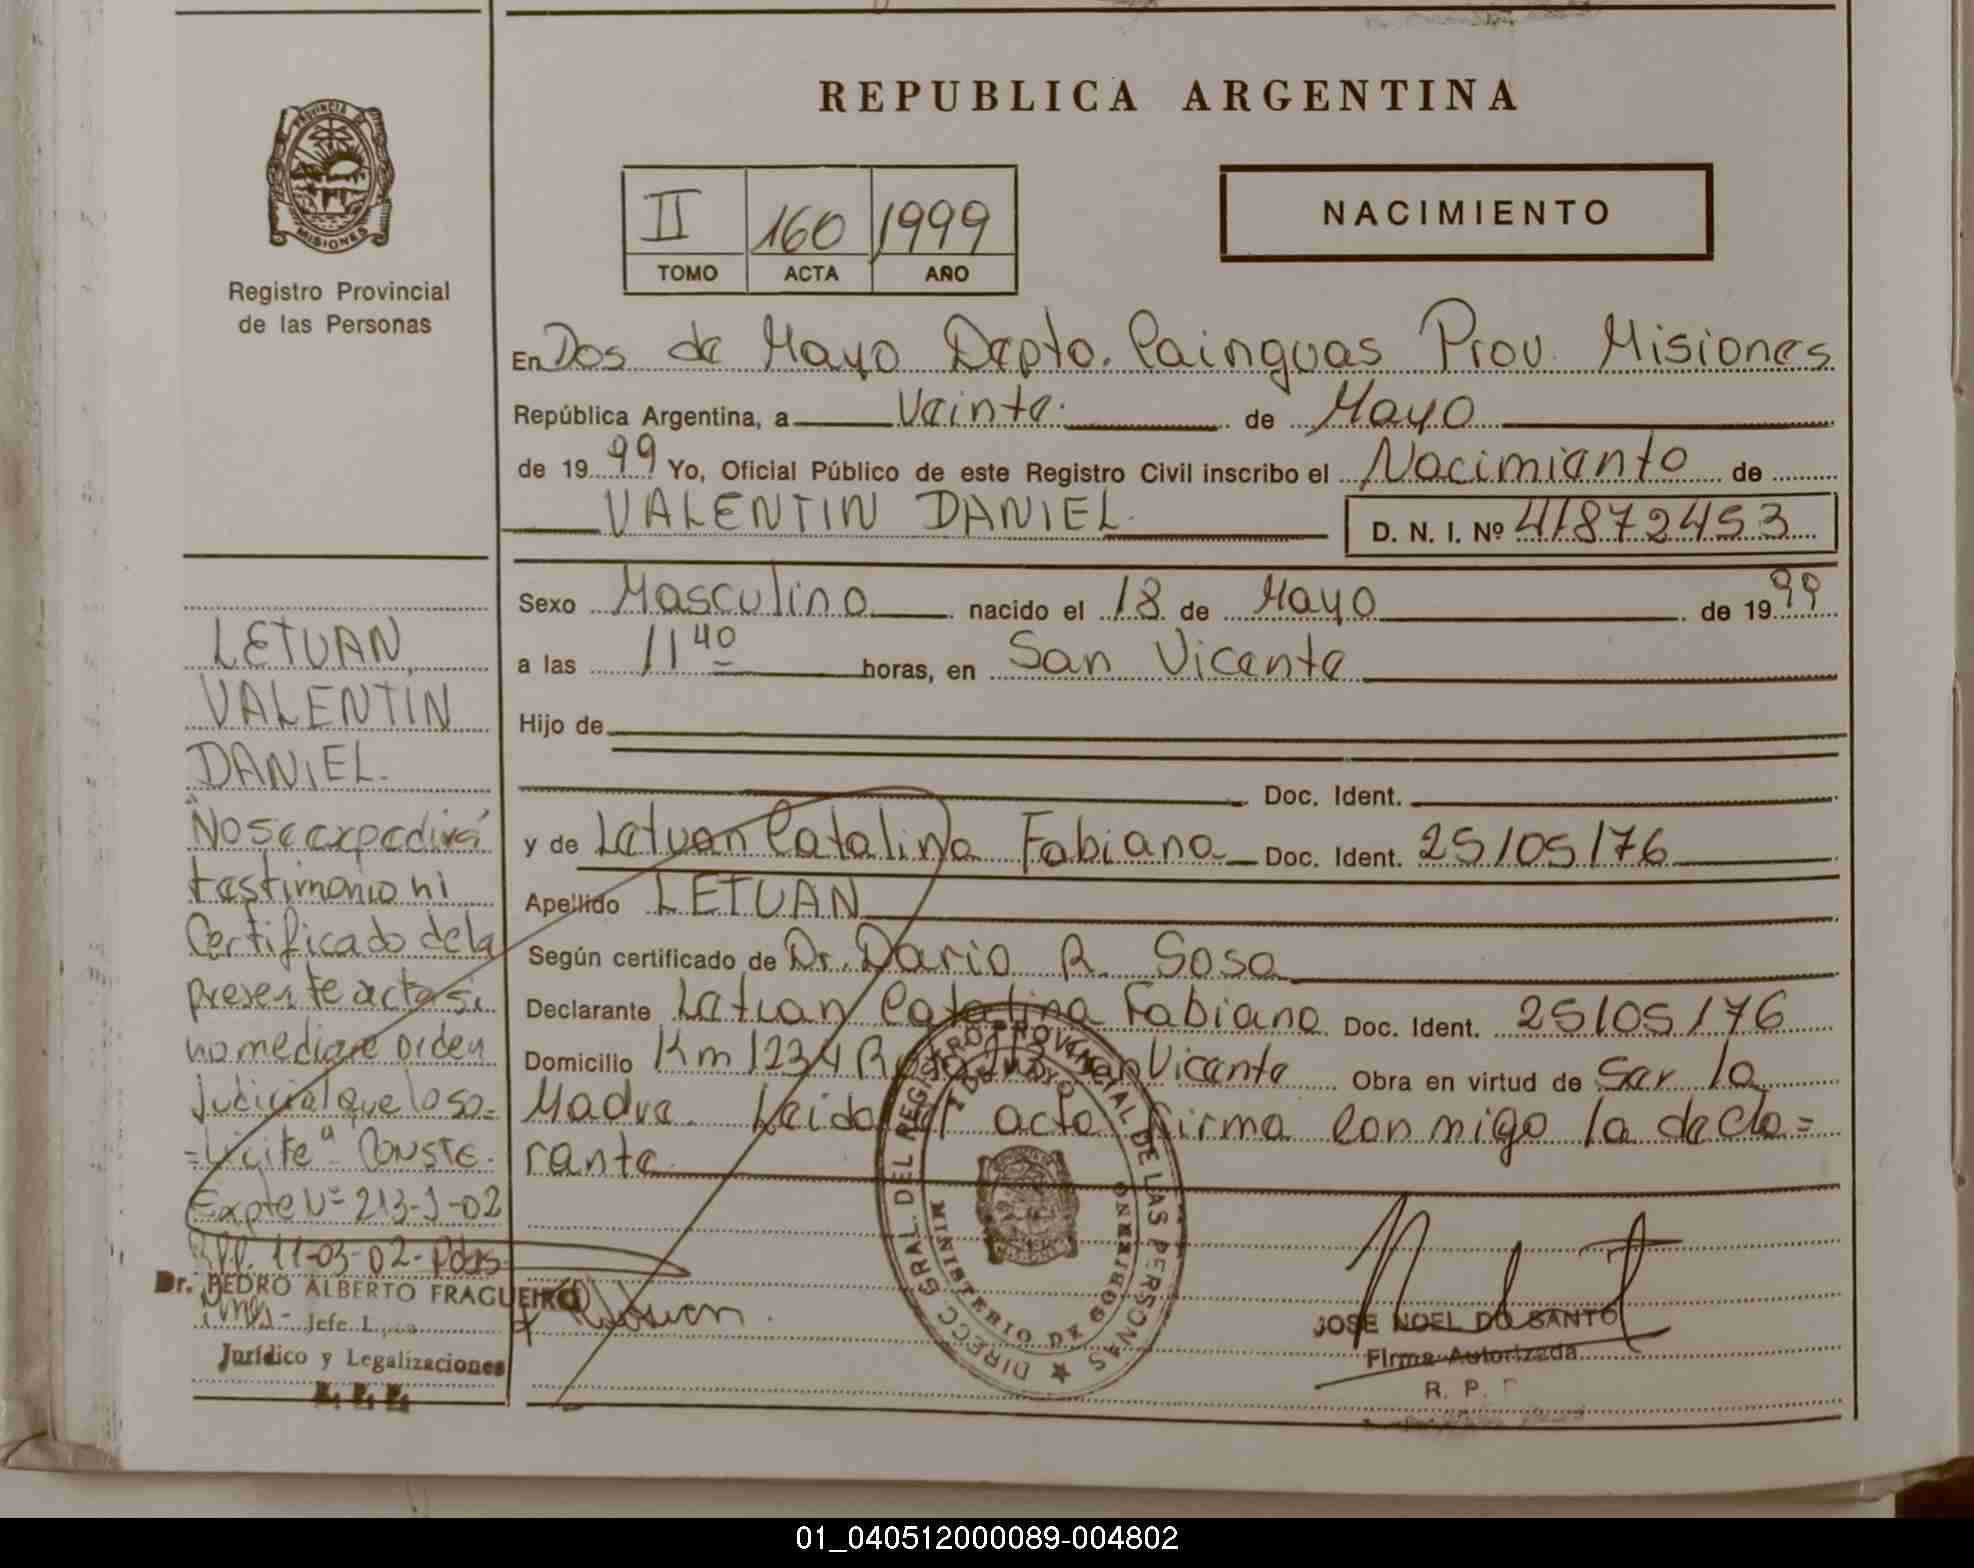 REPUBLICA ARGENTINA
PROVINCIA DE
MISIONES
Registro Provincial
de las Personas
II 160 1999
TOMO ACTA AÑO
NACIMIENTO
En Dos de Mayo Depto. Cainguas Prov. Misiones
República Argentina, a Veinte de Mayo
de 19 99 Yo, Oficial Público de este Registro Civil inscribo el Nacimiento de
VALENTIN DANIEL.
D. N. I. Nº 41872453
Sexo Masculino nacido el 18 de Mayo de 19 99
a las 11 40 horas, en San Vicente
Hijo de
Doc. Ident.
y de Letuan Catalina Fabiana Doc. Ident. 25/05/76
Apellido LETUAN
Según certificado de Dr. Dario R. Sosa
Declarante Letuan Catalina Fabiana Doc. Ident. 25/05/76
Domicilio Km 1234 Ruta San Vicente Obra en virtud de Ser la
Madre. Leida el acta firma conmigo la decla=
rante.
LETUAN,
VALENTIN
DANIEL.
"No se expedirá
testimonio ni
Certificado de la
presente acta si
no mediare orden
judicial que lo so=
=licite" CONSTE.
Expte Nº 213-J-02
11-03-02-Pdas
Dr. PEDRO ALBERTO FRAGUEIRO
Mnes- Jefe
Jurídico y Legalizaciones
R. P. P.
DIRECC. GRAL. DEL REGISTRO PROVINCIAL DE LAS PERSONAS
MINISTERIO DE GOBIERNO
2 DE MAYO
JOSE NOEL DO SANTO
Firma Autorizada
R. P.
01_040512000089-004802